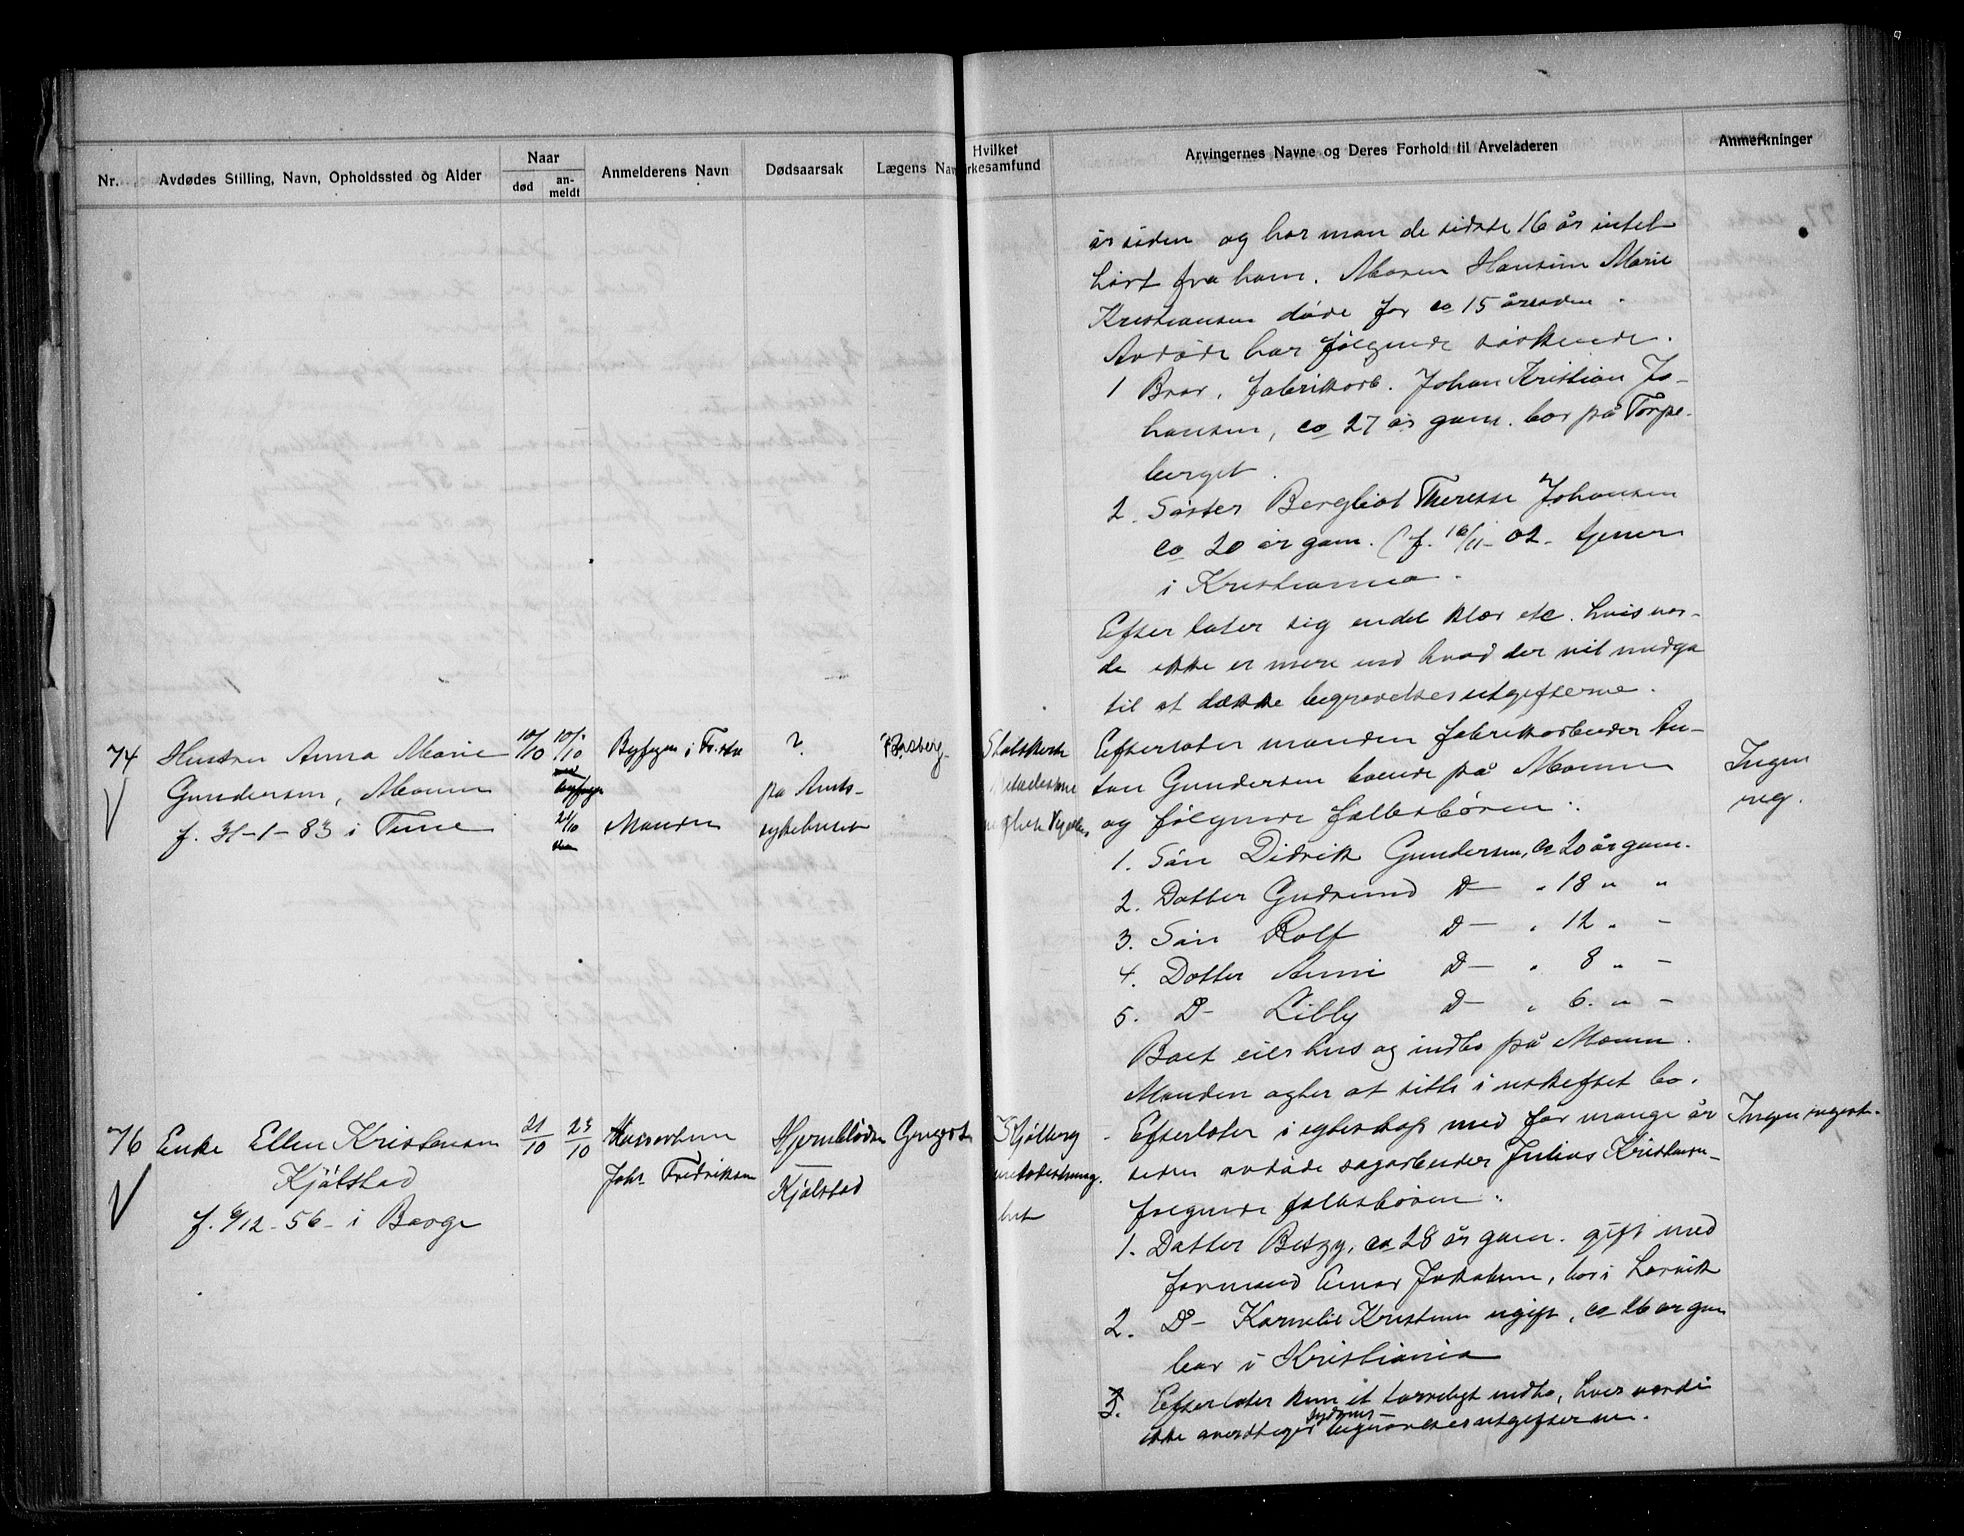 Nr.
Avdødes Stilling, Navn, Opholdssted og Alder
Naar
død
an-
meldt
Anmelderens Navn
Dødsaarsak
Lægens Nav
Hvilket
rkesamfund
Arvingernes Navne og Deres Forhold til Arveladeren
Anmerkninger
år siden og har man de sidste 16 år intet
hørt fra ham. Maren Hansine Marie
Kristiansen døde for ca 15 år siden.
Avdøde har følgende søskende.
1 Bror, fabrikarb. Johan Kristian Jo-
hansen, ca 27 år gam. bor på Torpe-
berget.
2. Søster Bergliot Therese Johansen
ca 20 år gam. (f. 16/11-02. tjener
i Kristiania.
Efterlater sig endel klær etc. hvis vær-
de ikke er mere end hvad der vil medgå
til at dække begravelsesutgifterne.
74
Hustru Anna Marie
Gundersen, Moum
f. 31-1-83 i Tune
10/10
10/10
21/10
Byfogen i Fr.stad
Manden
?
på Amts-
sykehuset
Efterlater manden fabrikarbeider An-
ton Gundersen boende på Moum
og følgende fællesbøren:
1. Søn Didrik Gundersen, ca 20 år gam.
2. Datter Gudrund D- " 18 " "
3. Søn Rolf D- " 12 " -
4. Datter Anni D- " 8 " -
5. D- Lilly D- " 6 " -
Boet eier hus og indbo på Moum.
Manden agter at sitte i uskiftet bo.
Ingen
reg.
76
Enke Ellen Kristensen
Kjølstad
f. 6/12-56- i Borge
21/10
23/10
Johs. Fredriksen
Hjerneblødn
Kjølstad
Efterlater i egteskap med for mange år
siden avdøde sagarbeider Julius Kristensen
følgende fællesbøren:
1. Datter Betzy, ca 28 år gam. gift med
formand Einar Jakobsen, bor i Larvik
2. D- Kornelie Kristensen ugift, ca 26 år gam
bor i Kristiania
3. Efterlater kun et tarveligt indbo, hvis værdi
ikke overstiger sydoms- begravelsesutgifterne.
Ingen registr.